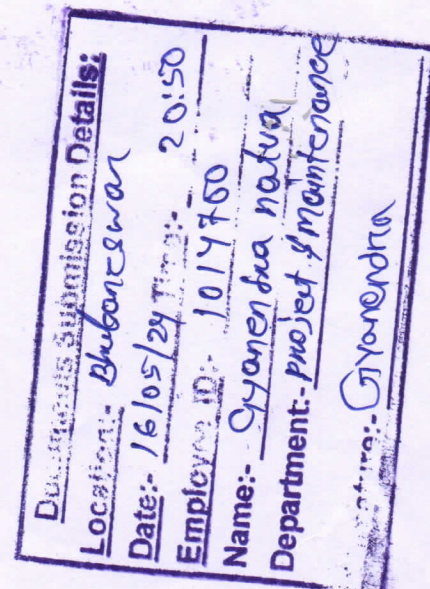 Documents Submission Details:
Location:- Bhubaneswar
Date:- 16/05/24 Time:- 20:50
Employee ID:- 1014760
Name:- Gyanendra natua
Department:- project & maintenance
Signature:- Gyanendra